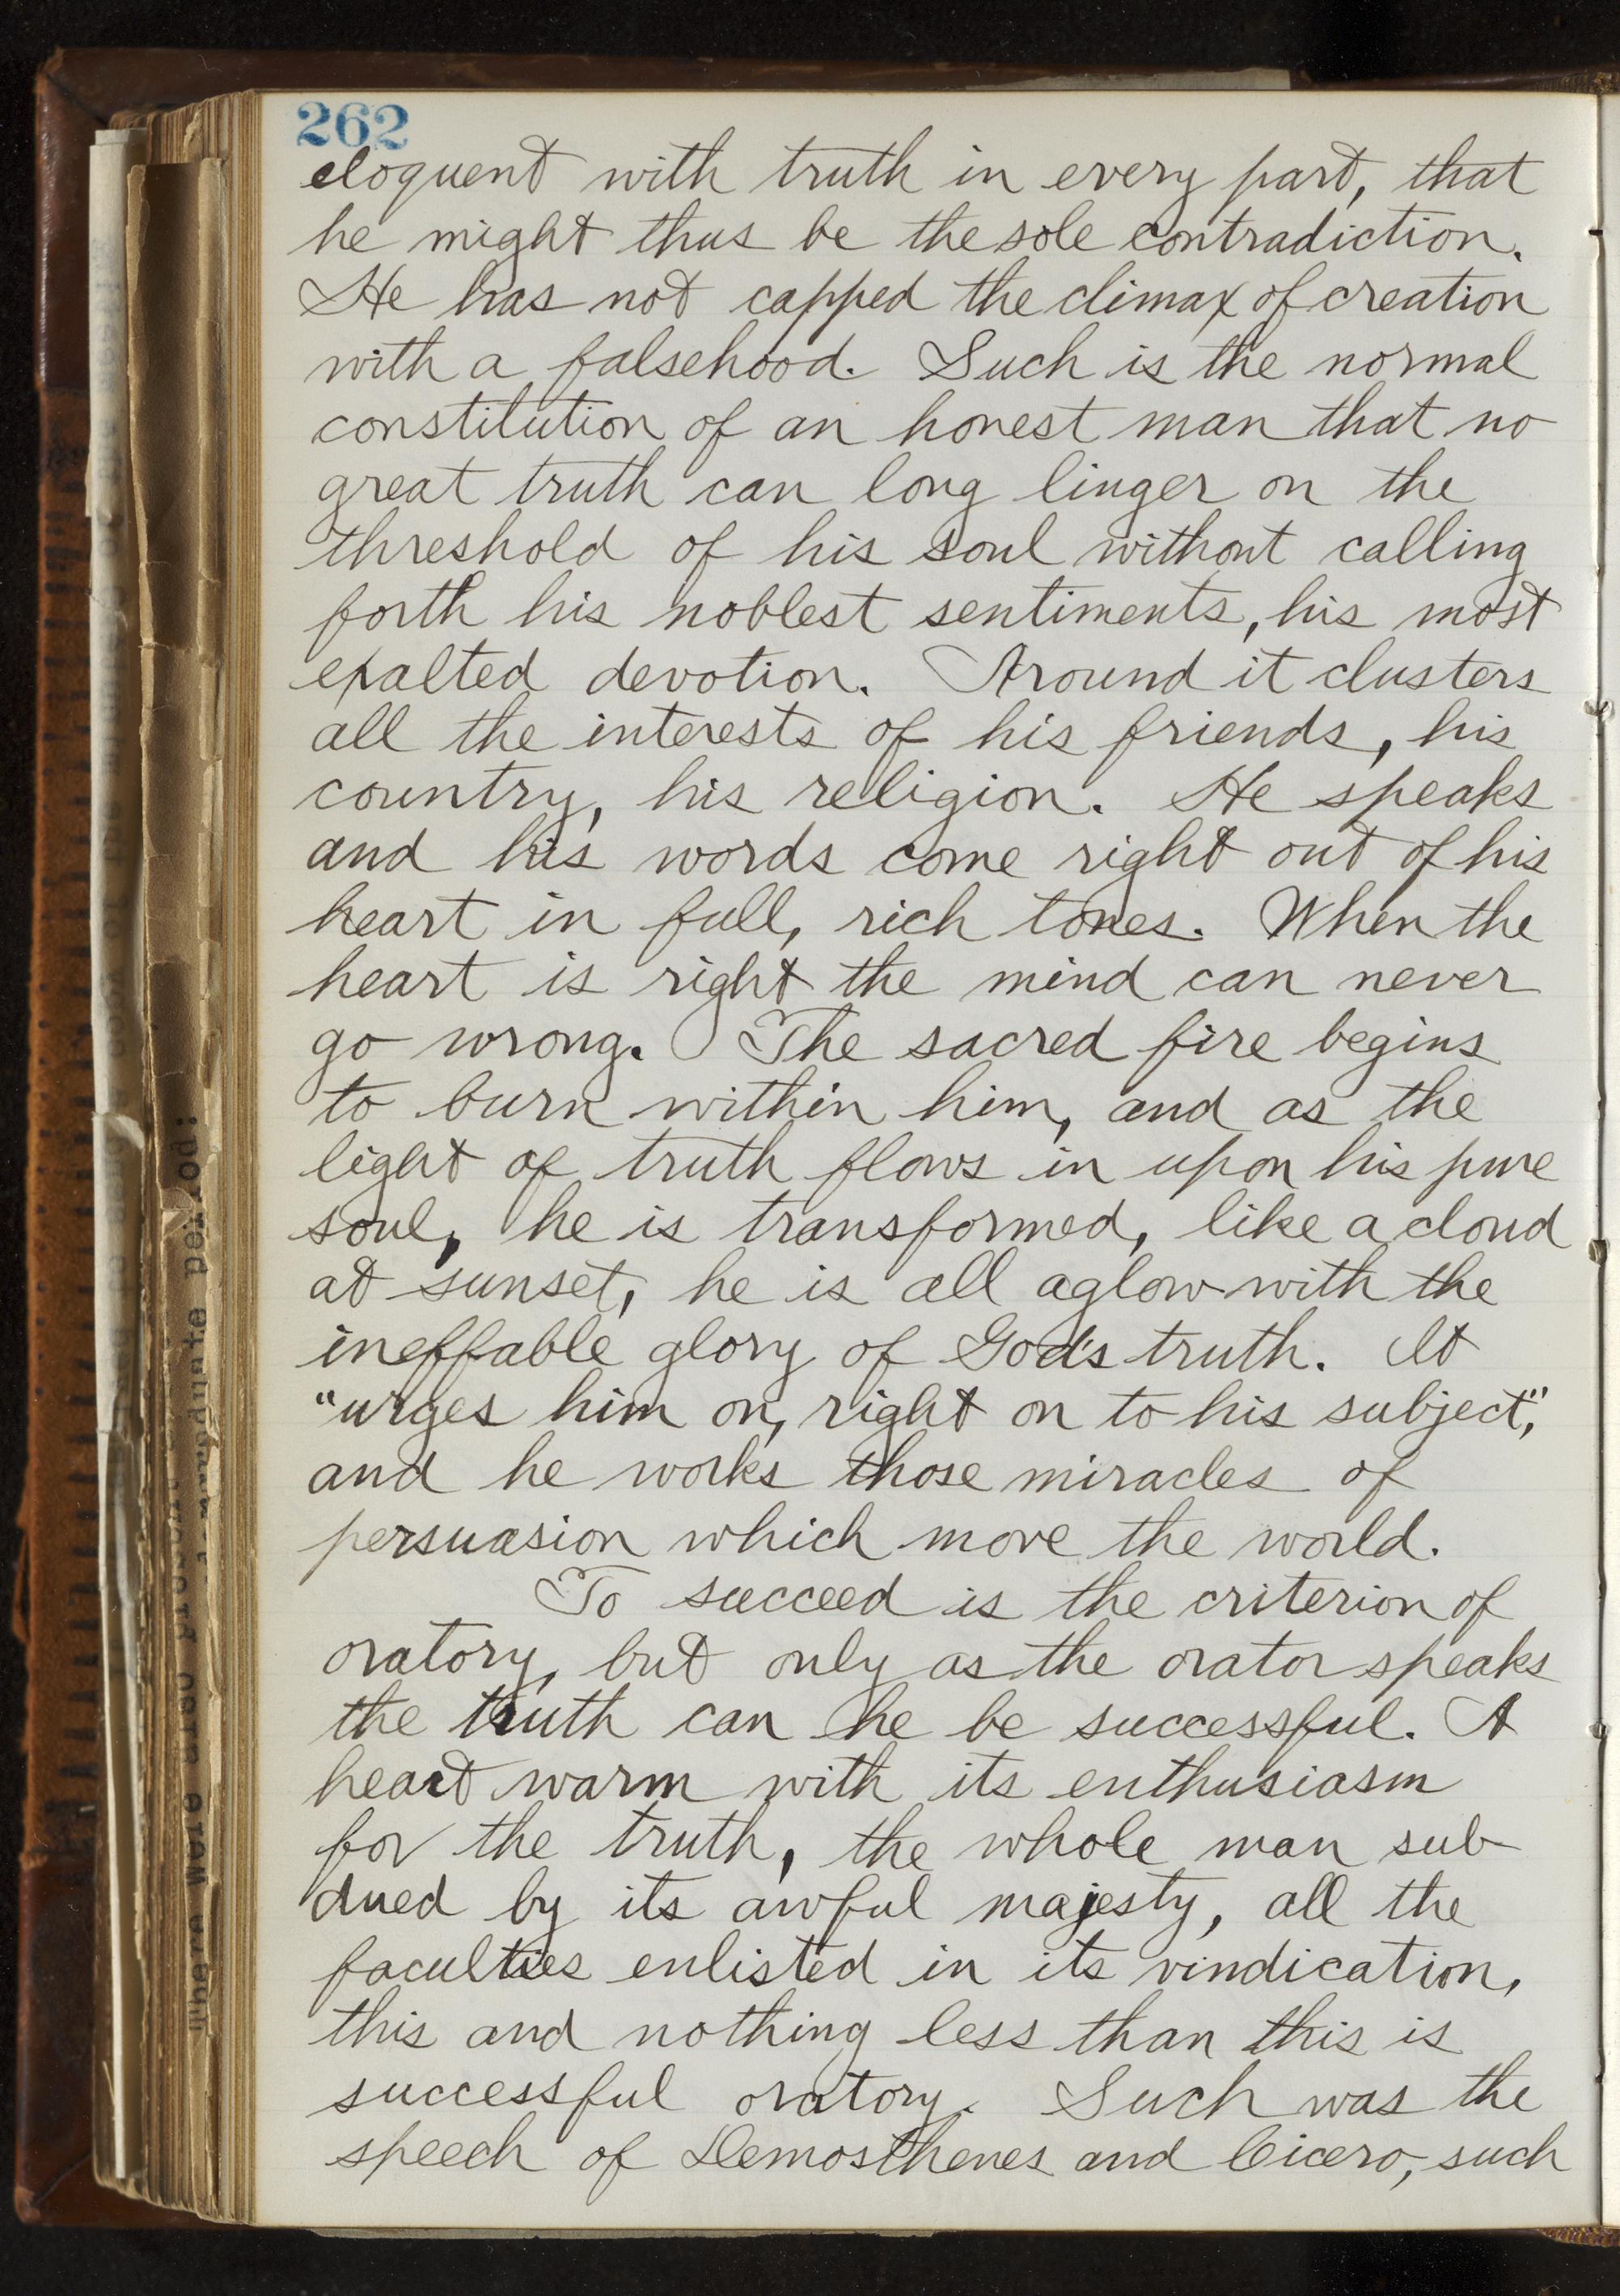 262
eloquent with truth in every part, that
he might thus be the sole contradiction.
He has not capped the climax of creation
with a falsehood. Such is the normal
constitution of an honest man that no
great truth can long linger on the
threshold of his soul without calling
forth his noblest sentiments, his most
exalted devotion. Around it clusters
all the interests of his friends, his
country, his religion. He speaks
and his words come right out of his
heart in full, rich tones. When the
heart is right the mind can never
go wrong. The sacred fire begins
to burn within him, and as the
light of truth flows in upon his pure
soul, he is transformed, like a cloud
at sunset, he is all aglow with the
ineffable glory of God's truth. It
"urges him on, right on to his subject",
and he works those miracles of
persuasion which move the world.
To succeed is the criterion of
oratory, but only as the orator speaks
the truth can he be successful. A
heart warm with its enthusiasm
for the truth, the whole man sub-
dued by its awful majesty, all the
faculties enlisted in its vindication,
this and nothing less than this is
successful oratory. Such was the
speech of Demosthenes and Cicero, such
period:
"here were also